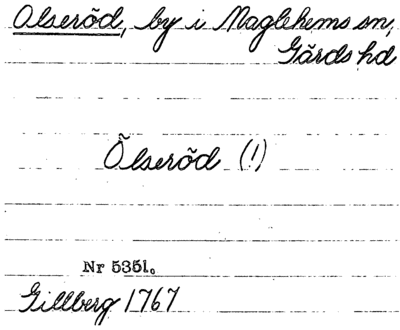 Olseröd, by i Maglehems sn,
Gärds hd
Ölseröd (!)
Nr 5351.
Gillberg 1767